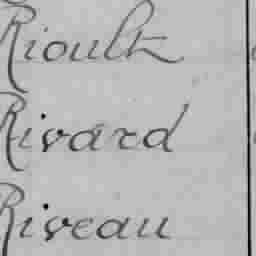 Rioult
Rivard
Riveau